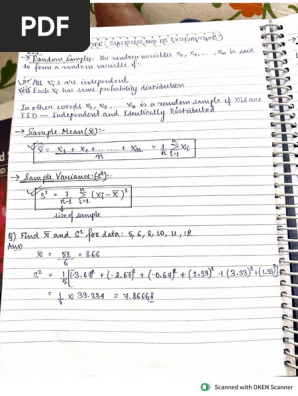 PDF
STATISTICS AND ITS DISTRIBUTIONS
→ Random Sample: The random variables X₁, X₂, ..., Xn is said
to form a random variable if:
All Xi's are independent.
Each Xi has same probability distribution
In other words X₁, X₂, ... Xn is a random sample if Xi's are
IID — Independent and Identically Distributed
→ Sample Mean (x̄):
x̄ = x₁ + x₂ + ...... + xn / n = 1/n Σ i=1 n xi
→ Sample Variance (S²):
S² = 1/n-1 Σ i=1 n (xi - x̄)²
size of sample
Q) Find x̄ and S² for data: 5, 6, 8, 10, 11, 12
Ans)
x̄ = 52/6 = 8.66
S² = 1/5 [(-3.67)² + (-2.67)² + (-0.67)² + (2.33)² + (3.33)² + (1.33)²]
= 1/5 × 39.334 = 7.86668
Scanned with OKEN Scanner